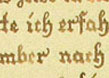 te ich erfah
mber nach